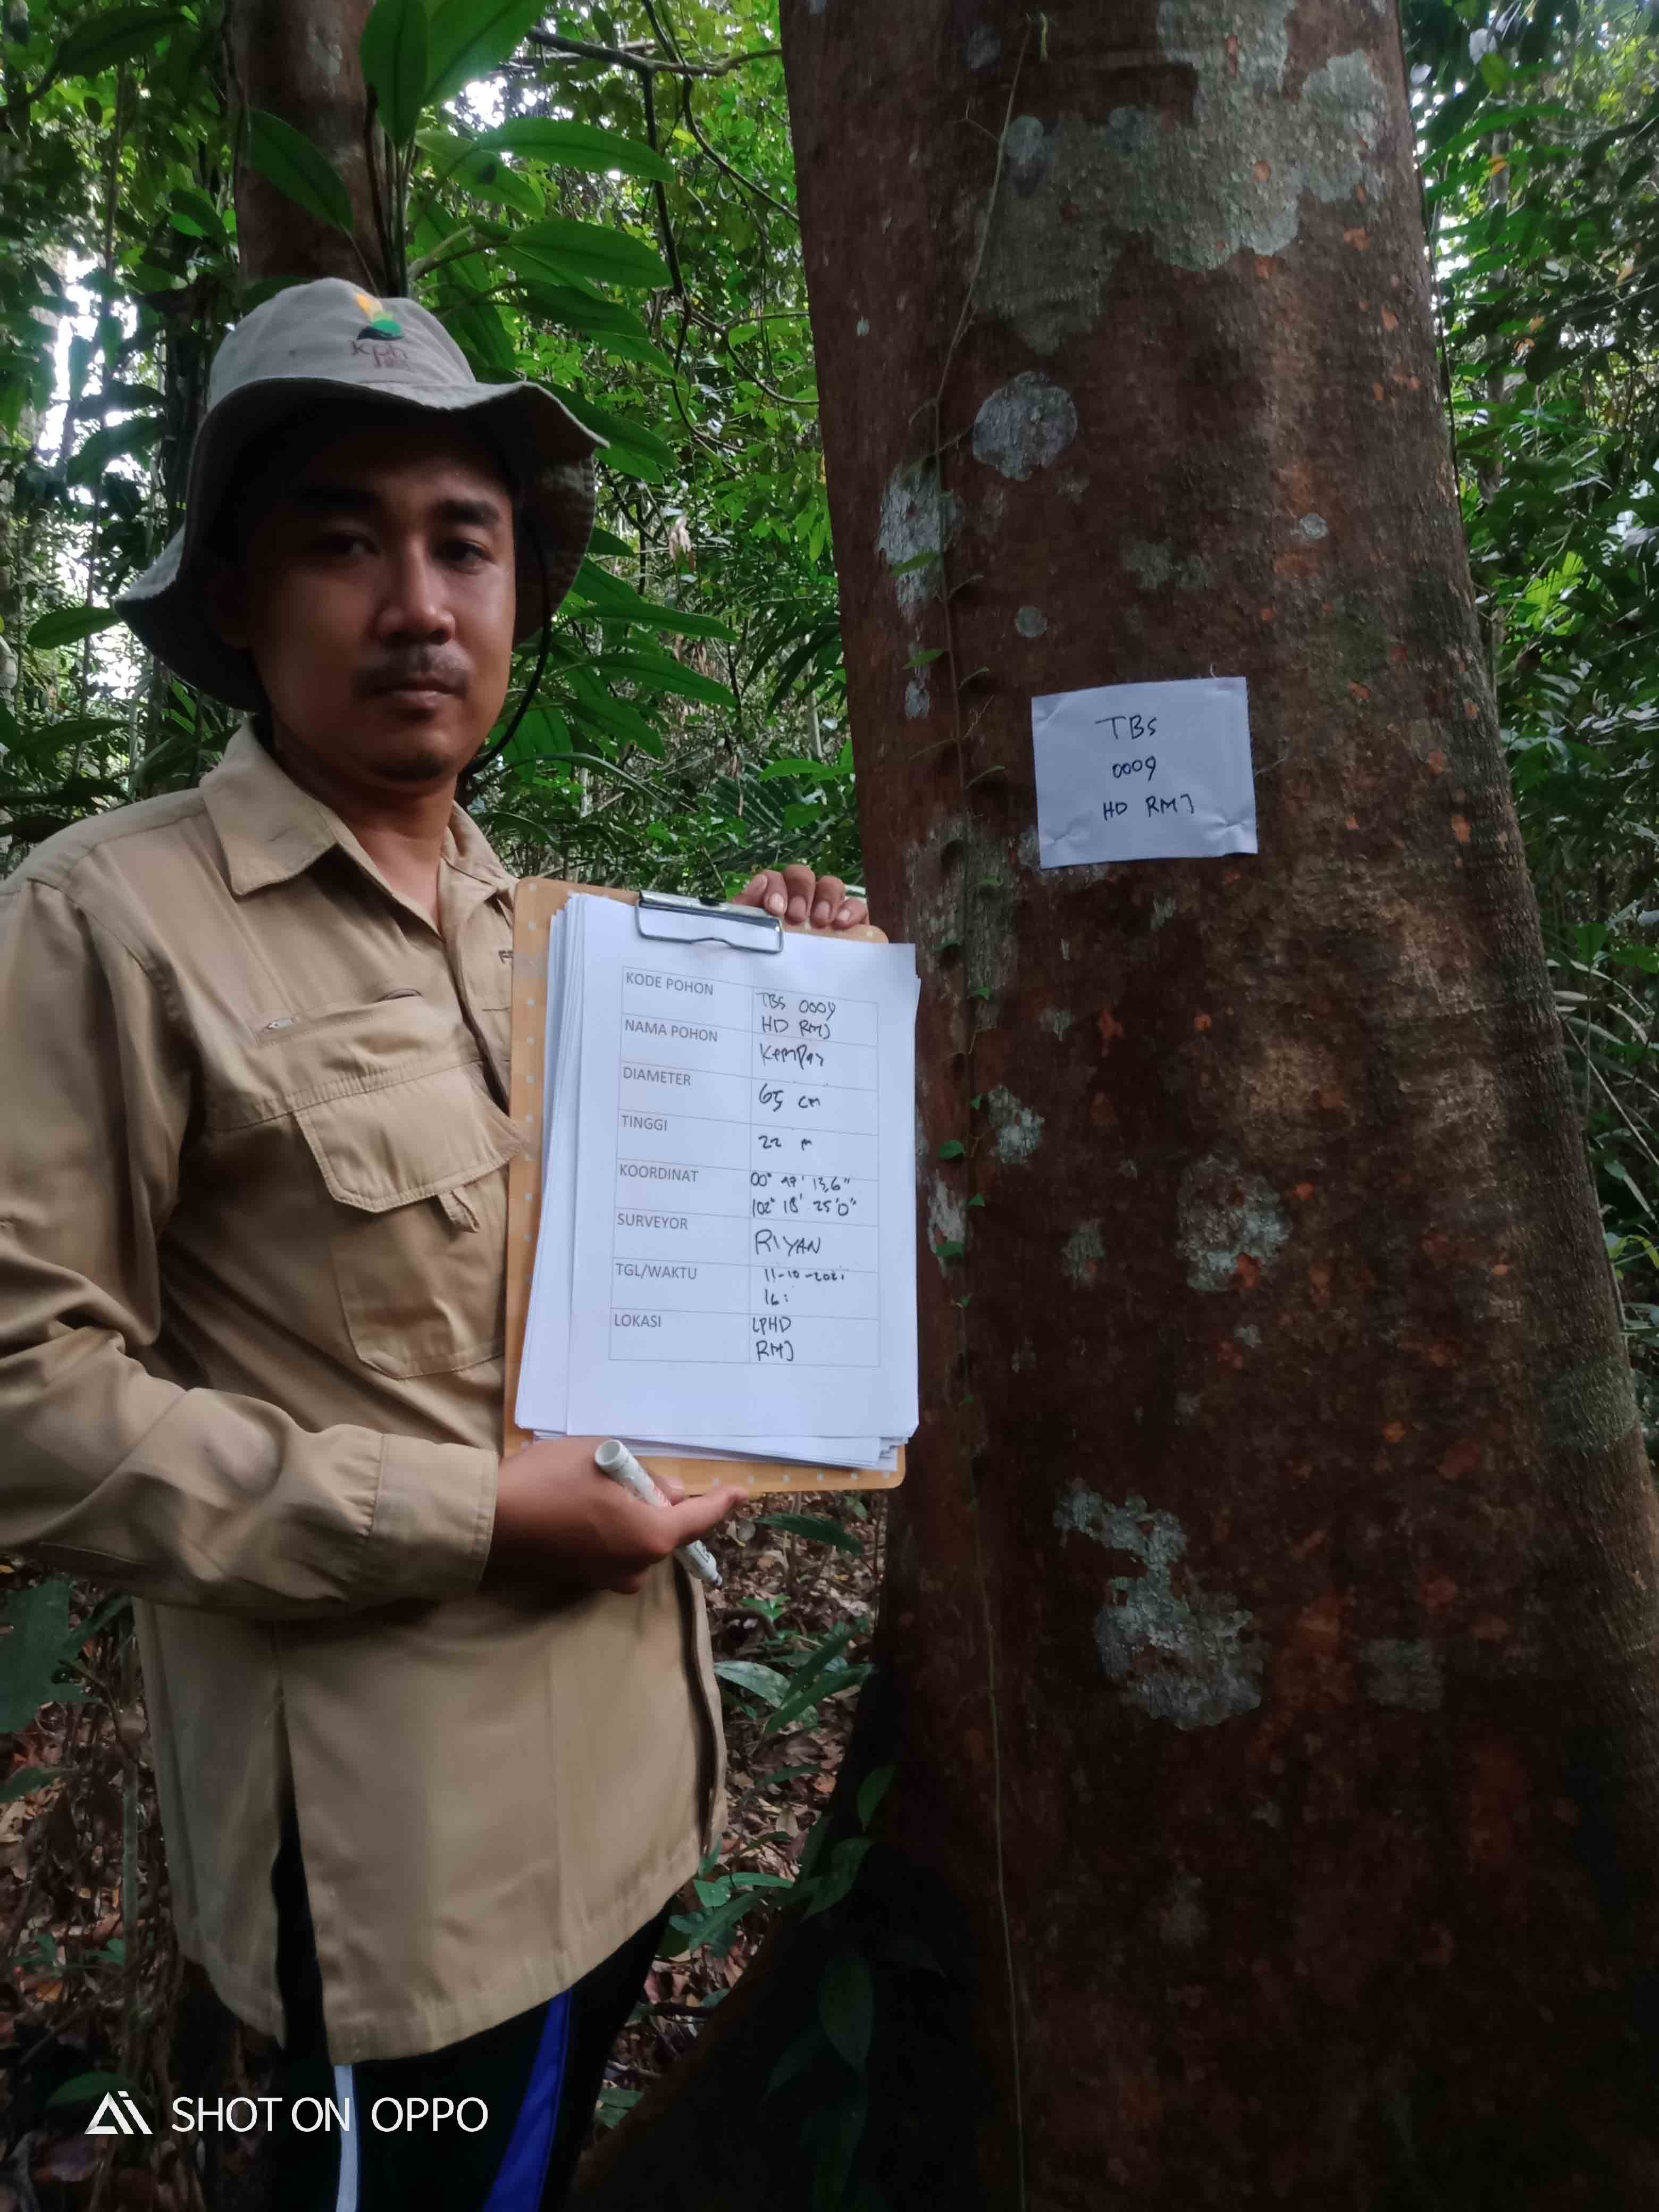 kph
TBS
0009
HD RMJ
KODE POHON
TBS 0009
HD RMJ
NAMA POHON
Kempas
DIAMETER
65 cm
TINGGI
22 m
KOORDINAT
00° 49' 13,6"
102° 18' 25'0"
SURVEYOR
RIYAN
TGL/WAKTU
11-10-2021
16:
LOKASI
LPHD
RMJ
SHOT ON OPPO